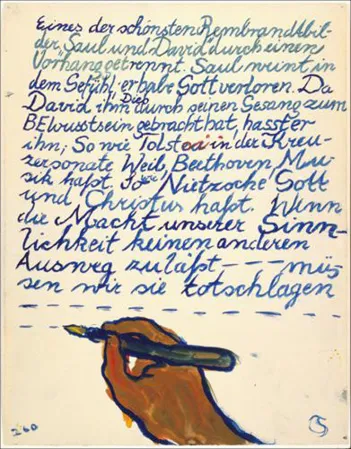 Eines der schönsten Rembrandtbil-
der „Saul und David" durch einen
Vorhang getrennt. Saul weint in
dem Gefühl, er habe Gott verloren. Da
David ihm Dies durch seinen Gesang zum
BEwusstsein gebracht hat, hasst er
ihn; So wie Tolstoi in der Kreu-
zersonate Weib, Beethoven, Mu-
sik haßt. So wie Nietzsche Gott
und Christus haßt. Wenn
die Macht unserer Sinn-
lichkeit keinen anderen
Ausweg zuläßt – – – müs
sen wir sie totschlagen
260
CS